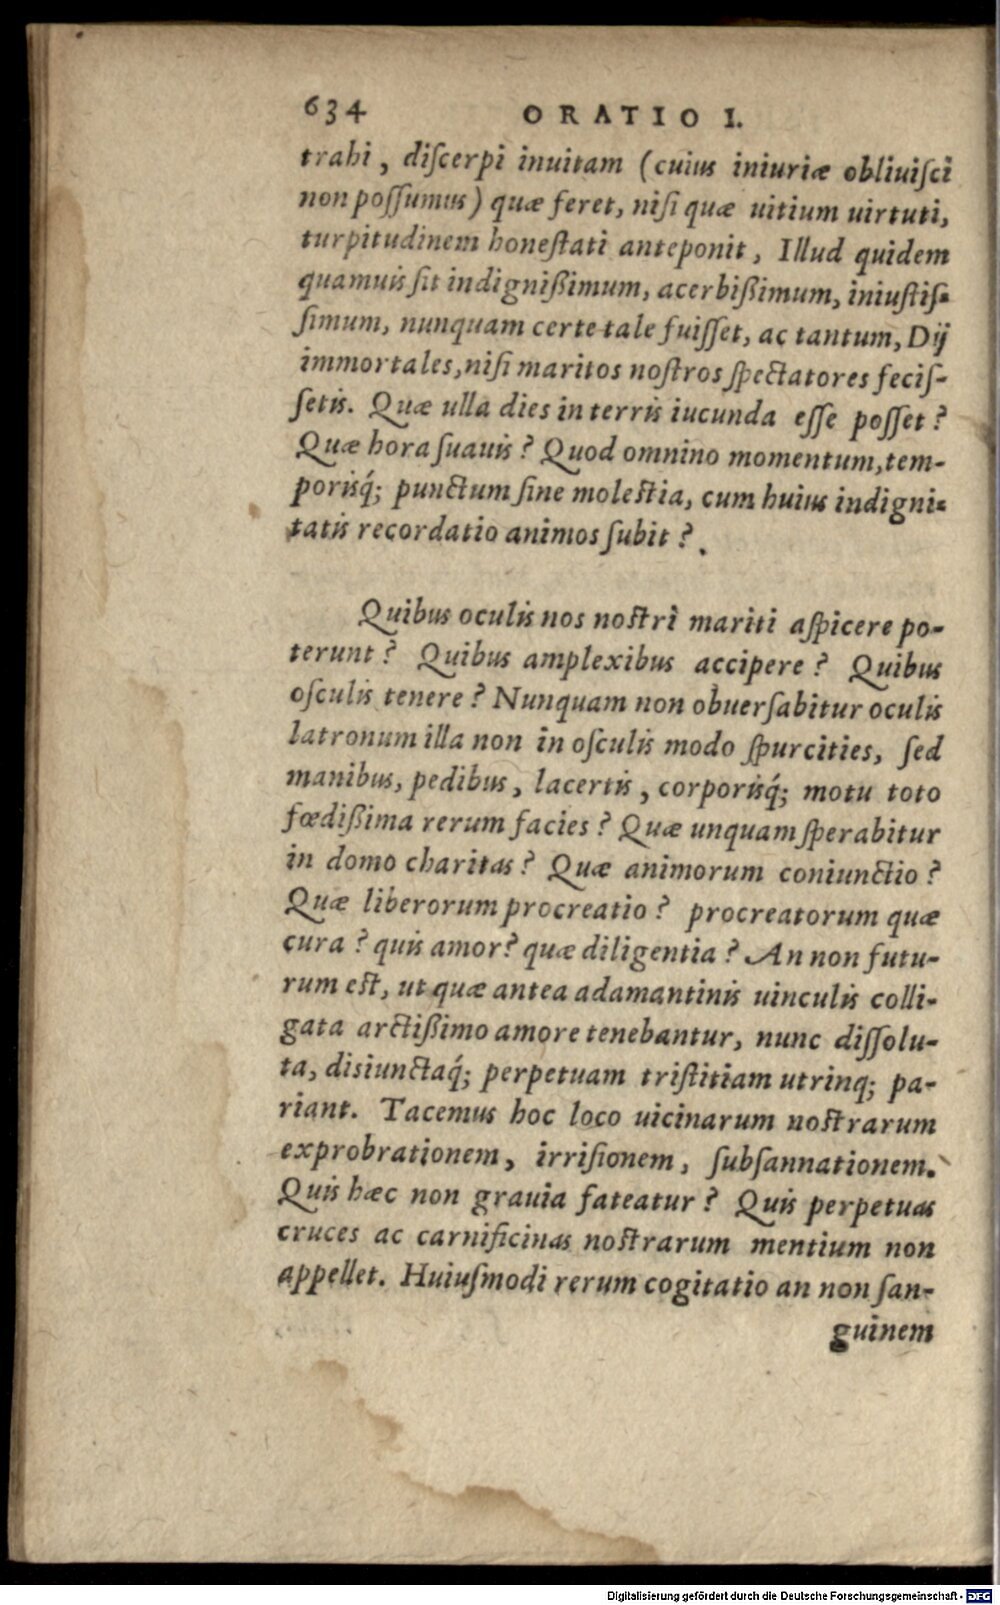 634 ORATIO I.
trahi, diſcerpi inuitam (cuius iniuriæ obliuiſci
non poſſumus) quæ feret, niſi quæ uitium uirtuti,
turpitudinem honeſtati anteponit, Illud quidem
quamuis ſit indignißimum, acerbißimum, iniuſtiſ-
ſimum, nunquam certe tale fuiſſet, ac tantum, Dij
immortales, niſi maritos noſtros ſpectatores feciſ-
ſetis. Quæ ulla dies in terris iucunda eſſe poſſet?
Quæ hora ſuauis? Quod omnino momentum, tem-
porisq́; punctum ſine moleſtia, cum huius indigni-
tatis recordatio animos ſubit?.
Quibus oculis nos noſtri mariti aſpicere po-
terunt? Quibus amplexibus accipere? Quibus
oſculis tenere? Nunquam non obuerſabitur oculis
latronum illa non in oſculis modo ſpurcities, ſed
manibus, pedibus, lacertis, corporisq́; motu toto
fœdißima rerum facies? Quæ unquam ſperabitur
in domo charitas? Quæ animorum coniunctio?
Quæ liberorum procreatio? procreatorum quæ
cura? quis amor? quæ diligentia? An non futu-
rum eſt, ut quæ antea adamantinis uinculis colli-
gata arctißimo amore tenebantur, nunc diſſolu-
ta, disiunctaq́; perpetuam triſtitiam utrinq; pa-
riant. Tacemus hoc loco uicinarum noſtrarum
exprobrationem, irriſionem, ſubſannationem.
Quis hæc non grauia fateatur? Quis perpetuas
cruces ac carnificinas noſtrarum mentium non
appellet. Huiuſmodi rerum cogitatio an non ſan-
guinem
Digitalisierung gefördert durch die Deutsche Forschungsgemeinschaft - DFG